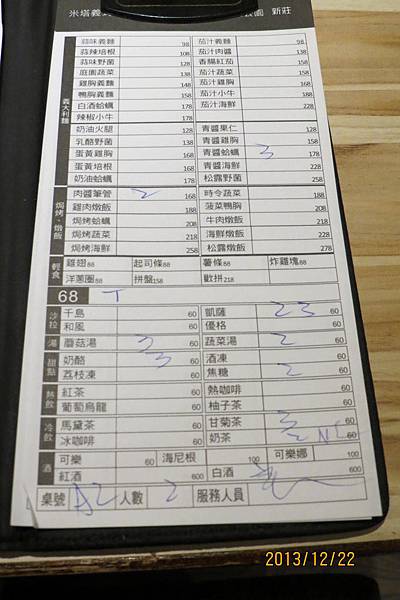 米塔義 園 新莊
義大利麵
蒜味義麵 98 茄汁義麵 98
蒜辣培根 108 茄汁肉醬 138
蒜味野菌 128 香腸紅茄 158
庭園蔬菜 138 茄汁蔬菜 158
雞胸義麵 148 茄汁雞胸 168
鴨胸義麵 158 茄汁小牛 188
白酒蛤蠣 178 茄汁海鮮 228
辣椒小牛 178
奶油火腿 128 青醬果仁 128
乳酪野菌 138 青醬雞胸 158
蛋黃雞胸 168 青醬蛤蠣 3 178
蛋黃培根 168 青醬海鮮 228
奶油蛤蠣 178 松露野菌 258
焗烤、燉飯
肉醬筆管 2 168 時令蔬菜 188
雞肉燉飯 188 菠菜鴨胸 208
焗烤蛤蠣 208 牛肉燉飯 218
焗烤蔬菜 218 海鮮燉飯 228
焗烤海鮮 258 松露燉飯 278
輕食 雞翅88 起司條88 薯條88 炸雞塊88
洋蔥圈88 拼盤158 歡拼218
68 T
沙拉 千島 60 凱薩 23 60
和風 60 優格 60
湯 蘑菇湯 60 蔬菜湯 2 60
甜點 奶酪 3 60 酒凍 60
荔枝凍 60 焦糖 2 60
熱飲 紅茶 60 熱咖啡 60
葡萄烏龍 60 柚子茶 60
冷飲 馬黛茶 60 甘菊茶 60
冰咖啡 60 奶茶 60
酒 可樂 60 海尼根 100 可樂娜 100
紅酒 600 白酒 600
桌號 A2 人數 2 服務人員
2013/12/22